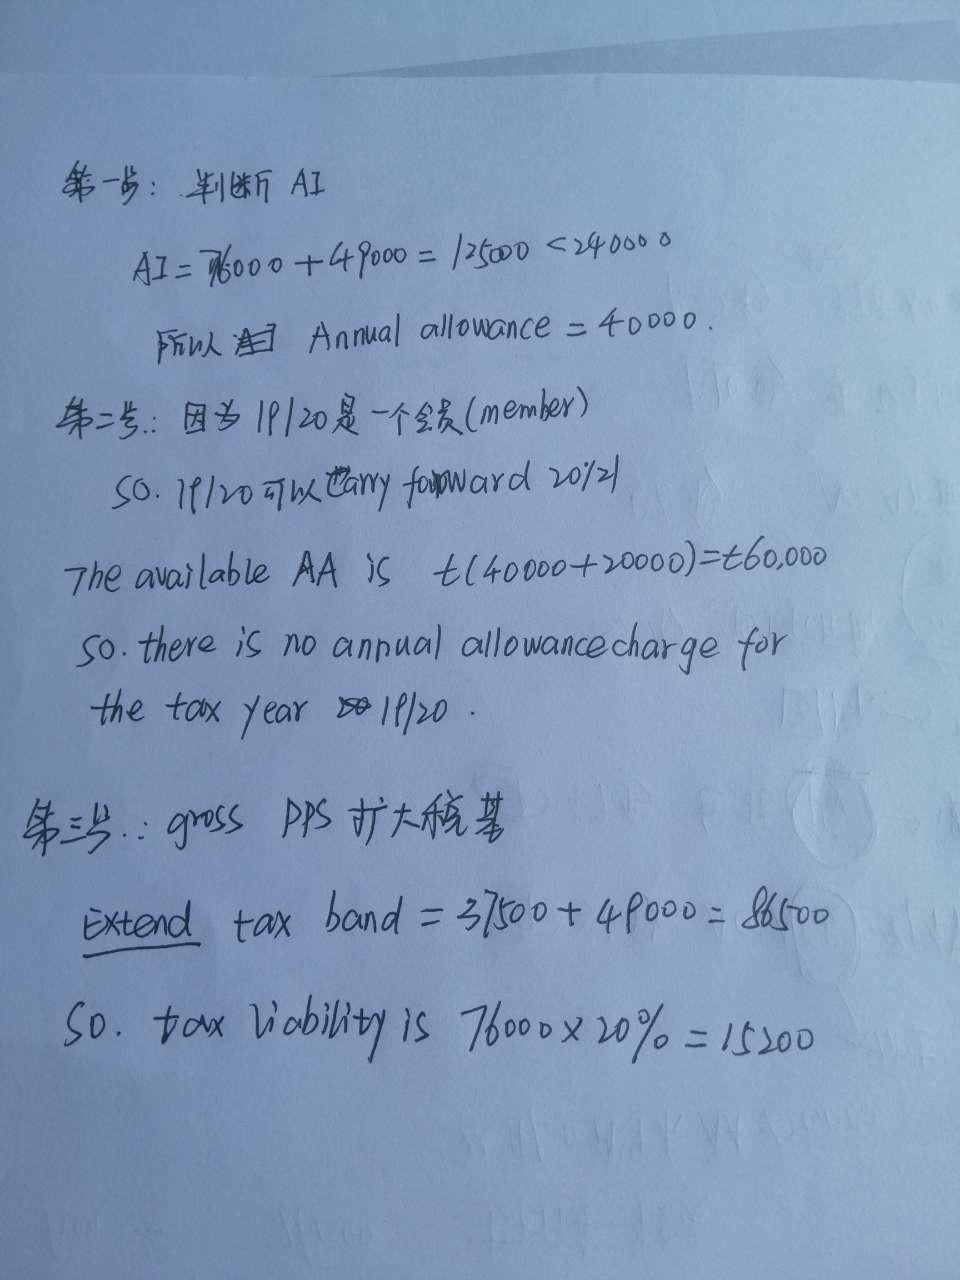 第一步: 判断 AI
AI = 76000 + 49000 = 125000 < 240000
所以 Annual allowance = 40000.
第二步: 因为 19/20是一个会员(member)
SO. 19/20可以 Carry forward 20/21
The available AA is £(40000+20000)=£60,000
SO. there is no annual allowance charge for
the tax year 19/20.
第三步: gross PPS 扩大税基
Extend tax band = 37500 + 49000 = 86500
So. tax liability is 76000 × 20% = 15200